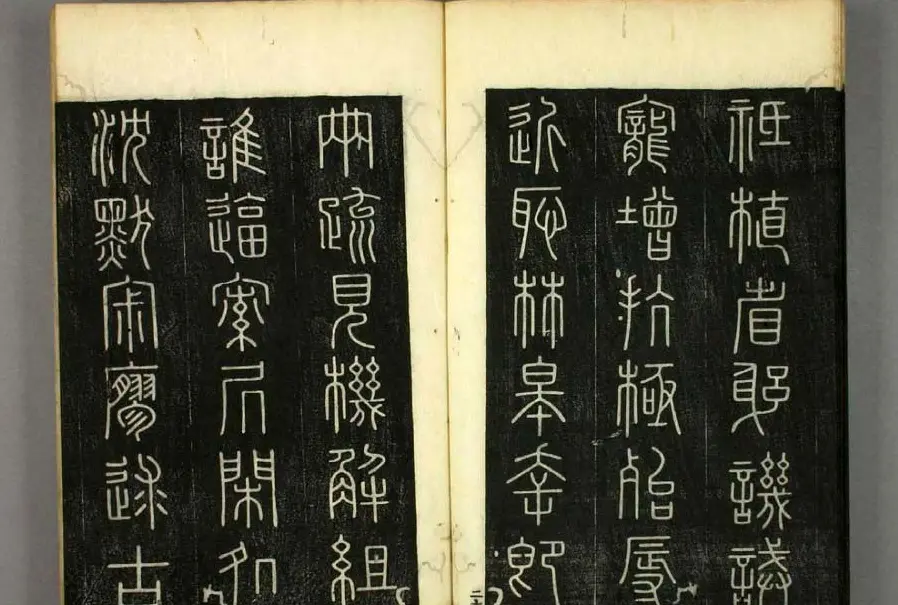 祗植省躬譏誡
寵增抗極殆辱
近恥林皋幸即
兩疏見機解組
誰逼索居閑處
沈默寂寥求古